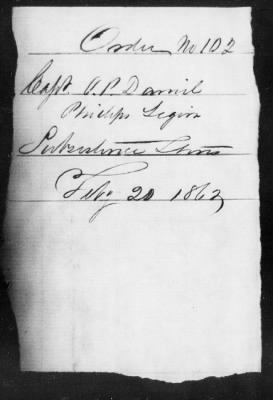 Order No 102
Capt. O. P. Daniel
Phillips Legion
Subsistence Stores
Feby 20 1862